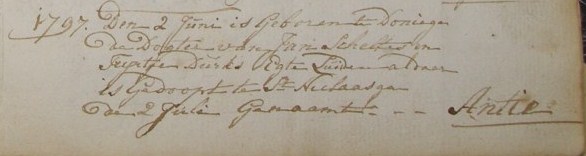 1797. Den 2 Juni is Geboren te Doniaga
de Dogter van Jan Scheltes en
Trijntje Durks Egte Lieden aldaar
is Gedoopt te St. Niclaasga
de 2 Juli Genaamt - - - Antie